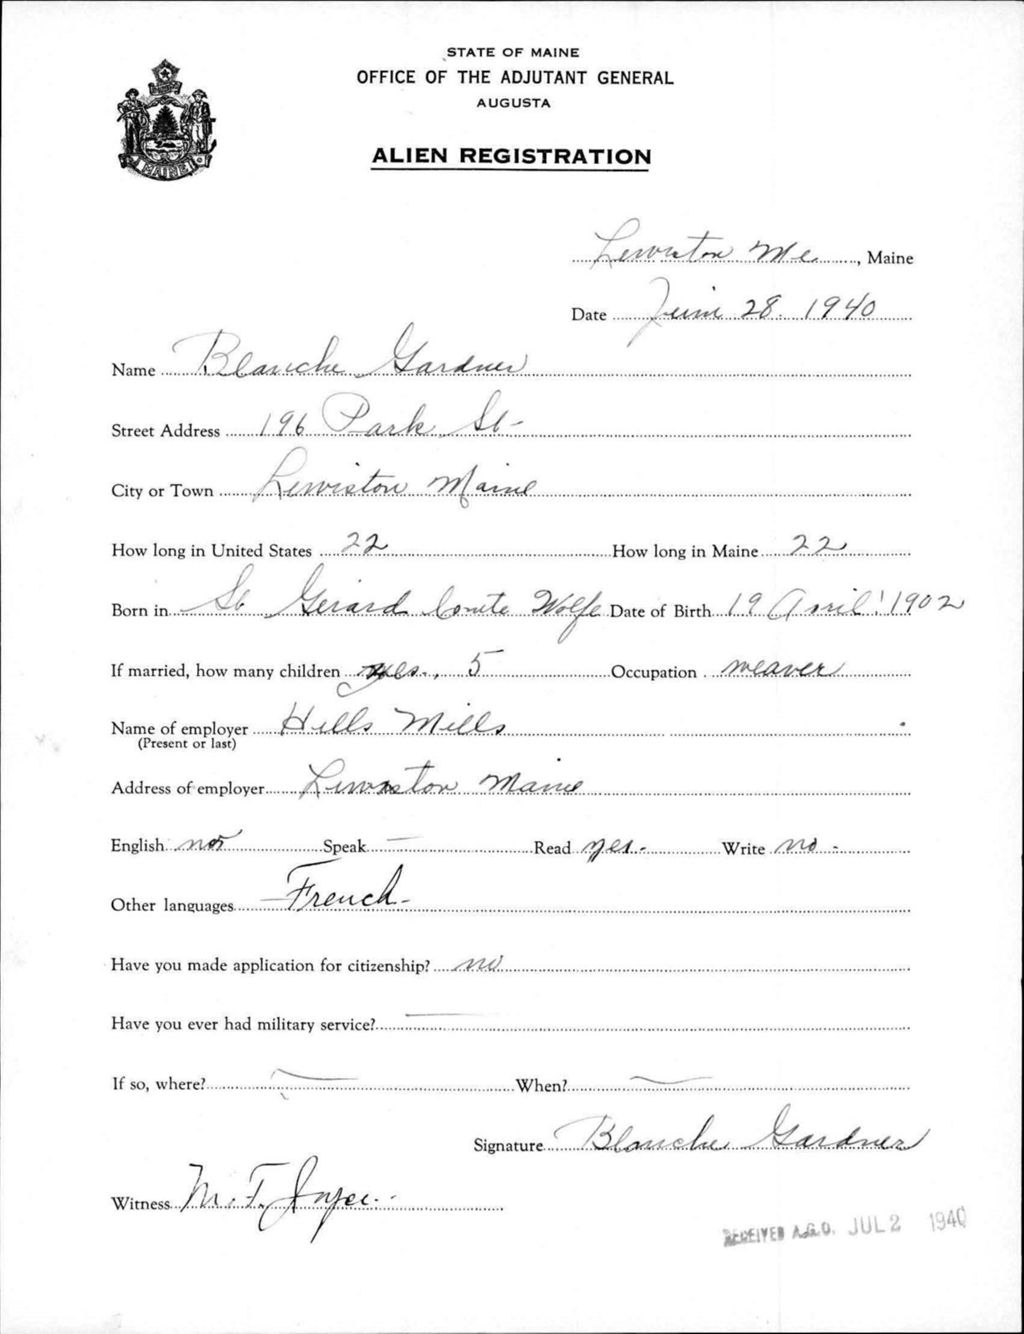 STATE OF MAINE
OFFICE OF THE ADJUTANT GENERAL
AUGUSTA
ALIEN REGISTRATION
MAINE
Lewiston Me, Maine
Date June 28. 1940
Name Blanche Gardner
Street Address 196 Park St-
City or Town Lewiston Maine
How long in United States 22 How long in Maine 22
Born in St Gerard Comte Wolfe Date of Birth 19 April 1902
If married, how many children yes, 5 Occupation weaver
Name of employer Hills Mills
(Present or last)
Address of employer Lewiston Maine
English no Speak — Read yes- Write no -
Other languages — French -
Have you made application for citizenship? no
Have you ever had military service? —
If so, where? — When? —
Signature Blanche Gardner
Witness M. T. Joyce
RECEIVED A.G.O. JUL 2 1940